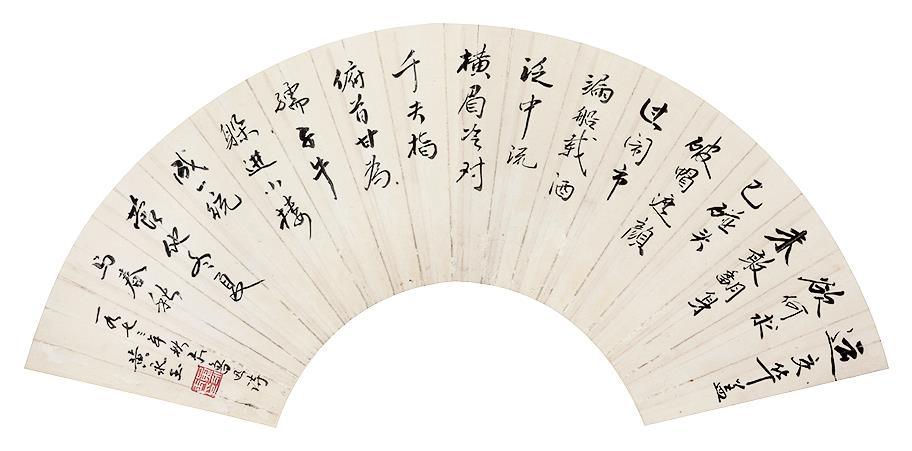 运交华盖
欲何求
未敢翻身
已碰头
破帽遮颜
过闹市
漏船载酒
泛中流
横眉冷对
千夫指
俯首甘为
孺子牛
躲进小楼
成一统
管他冬夏
与春秋
一九七三年 鲁迅诗
黄永玉